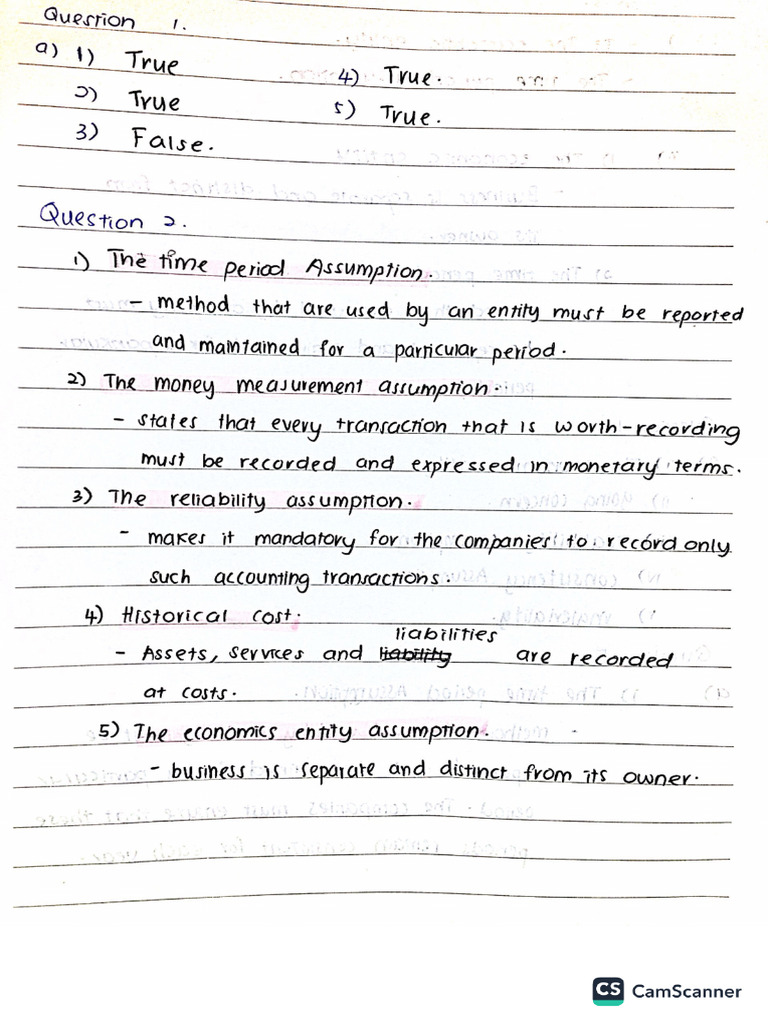 Question 1.
a) 1) True 4) True.
2) True 5) True.
3) False.
Question 2.
1) The time period Assumption.
- method that are used by an entity must be reported
and maintained for a particular period.
2) The money measurement assumption.
- states that every transaction that is worth-recording
must be recorded and expressed in monetary terms.
3) The reliability assumption.
- makes it mandatory for the companies to record only
such accounting transactions.
4) Historical cost.
liabilities
- Assets, services and liability are recorded
at costs.
5) The economics entity assumption.
- business is separate and distinct from its owner.
CS CamScanner